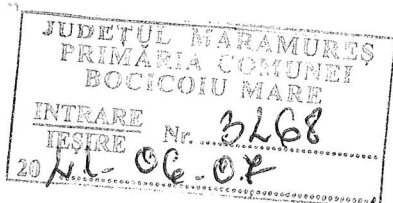 JUDEȚUL MARAMUREȘ
PRIMĂRIA COMUNEI
BOCICOIU MARE
INTRARE
IEȘIRE Nr. 3268
20 21-06-07